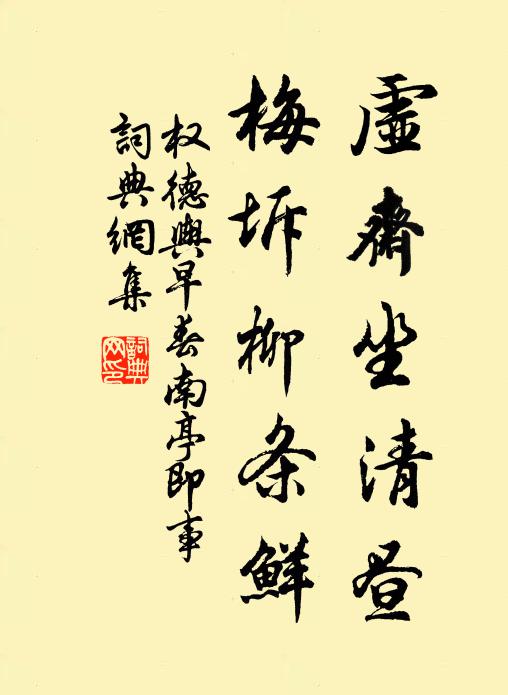 虚齋坐清昼
梅坼柳条鮮
权德輿早春南亭即事
詞典網集
詞典网印